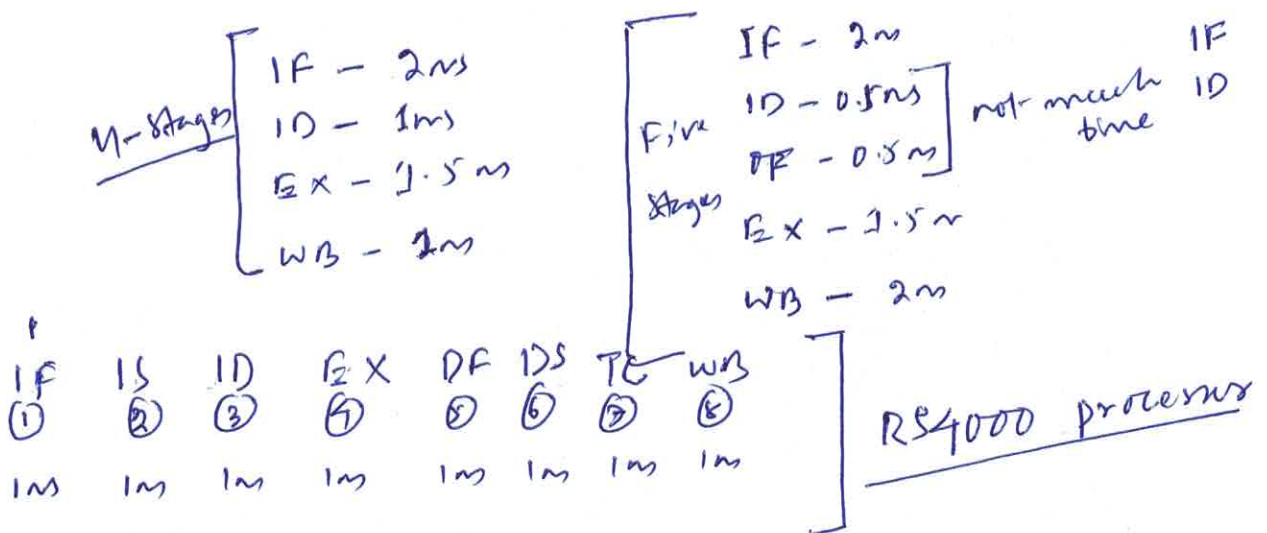 4-Stages
IF - 2ns
ID - 1ns
EX - 1.5ns
WB - 1ns
Five
Stages
IF - 2n
ID - 0.5ns
OF - 0.5n
EX - 1.5n
WB - 2n
not much
time
IF
ID
IF IS ID EX DF DS TC WB
① ② ③ ④ ⑤ ⑥ ⑦ ⑧
1ns 1ns 1ns 1ns 1ns 1ns 1ns 1ns
RS4000 processor